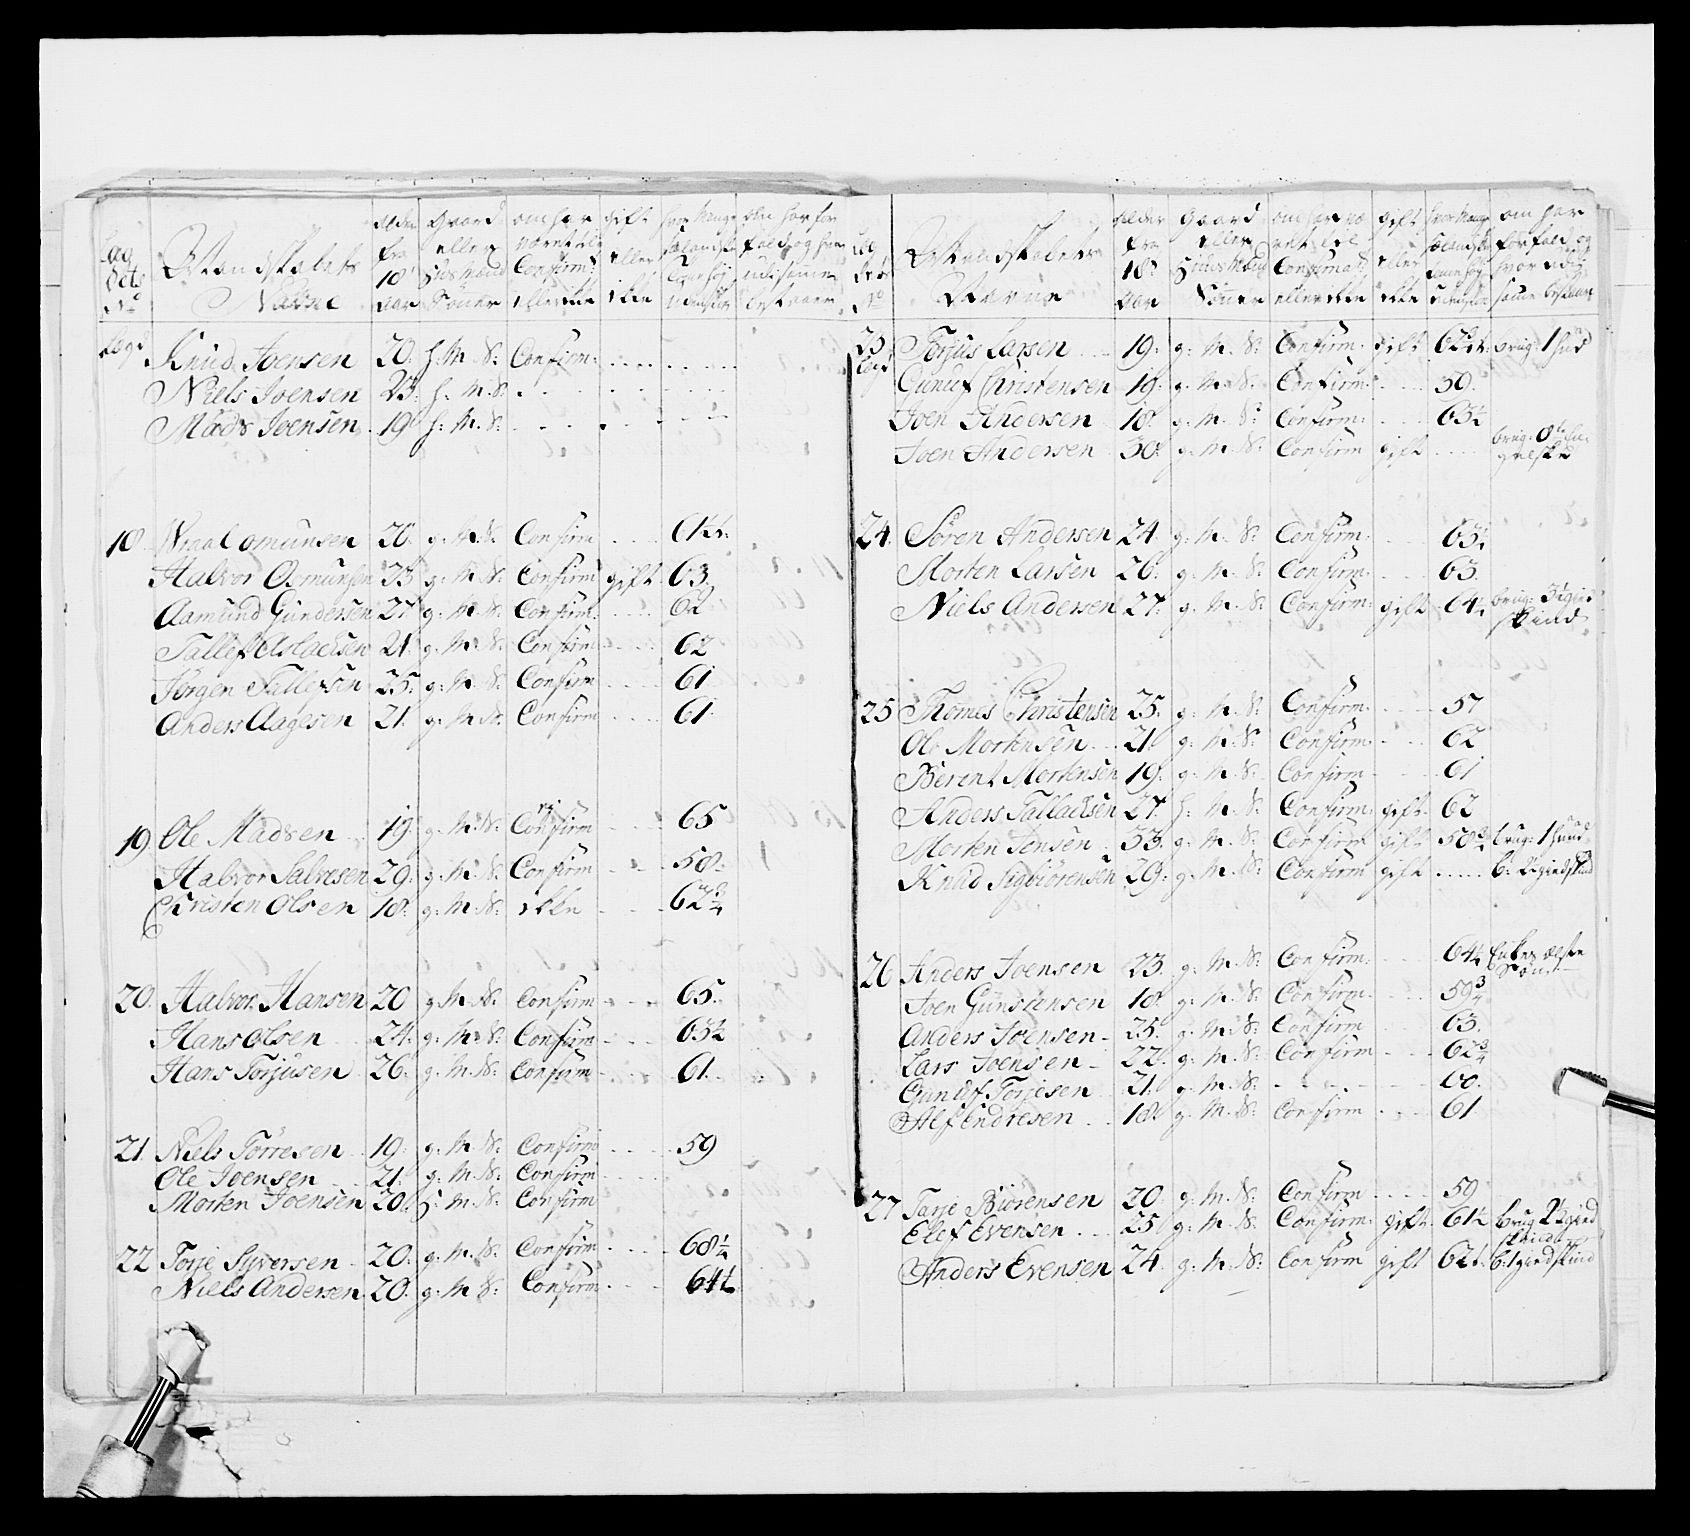 Mandskabets
Navne
alder
fra
18
aar
Gaard
eller
Huusmand
Sønner
om har
været til
Confirm:
eller ikke
gift
eller
ikke
Knud Joensen 20: h. M. S: Confirm:
Niels Joensen 23: h. M. S:
Mads Joensen 19 h: M. S:
18 Omunsen 26: g: M. S: Confirm 61½:
Halvor Osmunsen 35 g: M: S: Confirm gift 63.
Aamund Gundersen 27: g: M: S: Confirm: 62
Tallef Aslacksen 21: g: M: S: Confirm 62
Jörgen Tallefsen 25: g: M: S: Confirm 61
Anders Aagesen 21: g: M. S: Confirm 61
19 Ole Madsen 19: g: M: S: Confirm 65
Halvor Salvesen 29: g: M: S: Confirm 58:
Christen Olsen 18: g: M: S: ikke 62¾
20. Halvor Hansen 20 g: M: S: Confirm 65.
Hans Olsen 24: g: M: S: Confirm 63½
Hans Torjusen 26: g: M: S: Confirm 61.
21. Niels Torresen 19: g: M: S: Confirm 59
Ole Joensen 21: g: M: S: Confirm
Morten Joensen 20: h: M: S: Confirm
22 Torje Syversen 20: g: M: S: Confirm 68½
Niels Andersen 20: g: M: S: Confirm 64½
Mandskabets
Navne
alder
fra
18
aar
Gaard
eller
Huusmand
Sønner
gift
eller
ikke
om har
forfald og
23 Torjus Larsen 19: g: M: S: Confirm: gift 62½: brug: 1 hud
Gunuf Christensen 19: g: M: S: Confirm: 50.
Joen Andersen 18: g: M. S: Confirm: 63½
Joen Andersen 30: g: M. S: Confirm gift
24. Sören Andersen 24: g: M. S: Confirm: 63½
Morten Larsen 26: g: M. S: Confirm: 63
Niels Andersen 27: g: M. S: Confirm: gift 64½ brug: 3 gied
skind
25 Thomes Christensen 25: g: M. S: Confirm: 57
Ole Mortensen 21: g: M: S: Confirm: 62
Berent Mortensen 19: g: M. S: Confirm 61
Anders Tallacksen 27: h: M. S: Confirm: gift 62
Morten Jensen 33: g: M. S: Confirm gift 58¾ brug: 1 hund
Knud Sigbiörensen 29: g: M. S: Confirm gift b: 2 giedskind
26 Anders Joensen 23. g: M. S: Confirm: 64½ Enkes ælste
Søn
Joen Gunstensen 18: g: M. S: Confirm: 59¾
Anders Joensen 25: g: M: S: Confirm 63.
Lars Joensen 22: g: M. S: Confirm 62¾
Gunuf Torjesen 21: g: M. S: 60.
Alf Endresen 18: g: M. S: Confirm 61
27 Tarje Biörensen 20: g: M. S: Confirm 59
Elef Evensen 25 g: M: S: Confirm: gift 61½ brug 2 gied
skind
Anders Evensen 24. g: M. S: Confirm gift 62½: b: 1 giedskind